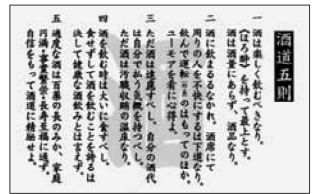 酒道五則
一 酒は楽しく飲むべきなり。
(ほろ酔)を持って最上とす。
酒は酒量にあらず、酒品なり。
二 酒に飲まるるなかれ、酒席にて
周りの人を不快にするは下道なり。
飲んで運転(のる)のはもってのほか。
ユーモアを肴に心得よ。
三 ただ酒は遠慮すべし、自分の酒代
は自分で払う気概を持つべし。
ただ酒は汚職収賄の温床なり。
四 酒を飲む時は大いに食すべし、
食せずして酒を飲むことを誇るは
決して健康な酒飲みとは言えず。
五 適度な酒は百薬の長のみか、家庭
円満・事業繁栄・長寿至福に通ず。
自信をもって酒道に精励せよ。